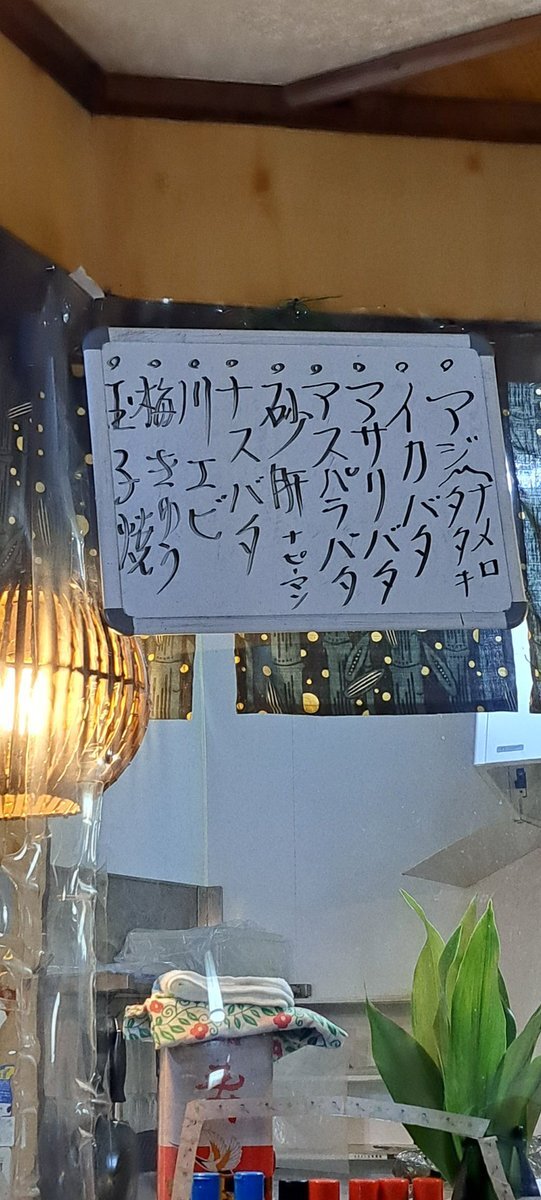 ○アジナメロ
タタキ
○イカバタ
○アサリバタ
○アスパラバタ
○砂肝 ナピーマン
○ナスバタ
○川エビ
○梅きゅう
○玉子焼